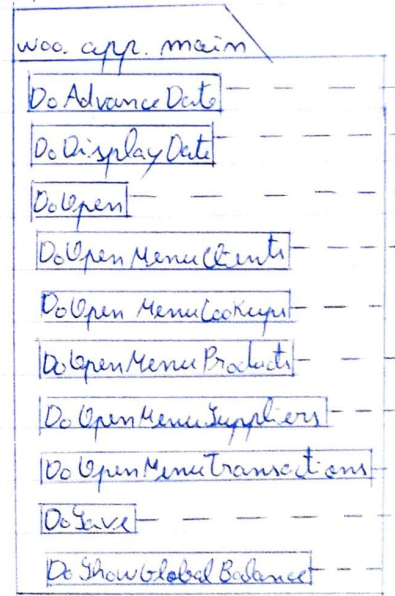 woo. app. main
DoAdvanceDate
DoDisplayDate
DoOpen
DoOpenMenuClients
DoOpenMenuLookups
DoOpenMenuProducts
DoOpenMenuSuppliers
DoOpenMenuTransactions
DoSave
DoShowGlobalBalance